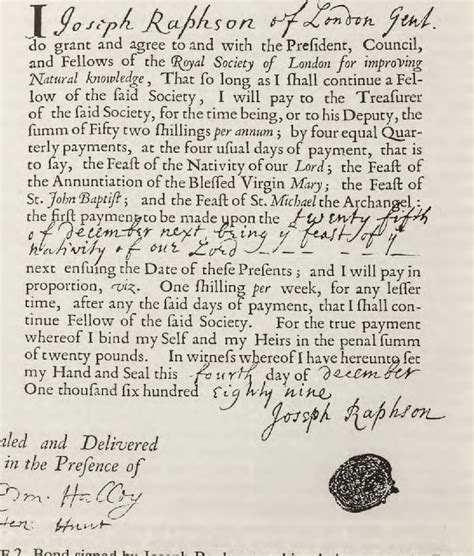 I Joseph Raphson of London Gent.
do grant and agree to and with the Preſident, Council,
and Fellows of the Royal Society of London for improving
Natural knowledge, That ſo long as I ſhall continue a Fel-
low of the ſaid Society, I will pay to the Treaſurer
of the ſaid Society, for the time being, or to his Deputy, the
ſumm of Fifty two ſhillings per annum; by four equal Quar-
terly payments, at the four uſual days of payment, that is
to ſay, the Feaſt of the Nativity of our Lord; the Feaſt of
the Annuntiation of the Bleſſed Virgin Mary; the Feaſt of
St. John Baptiſt; and the Feaſt of St. Michael the Archangel:
the firſt payment to be made upon the twenty fifth
of december next being ye feast of ye
nativity of our Lord
next enſuing the Date of theſe Preſents; and I will pay in
proportion, viz. One ſhilling per week, for any leſſer
time, after any the ſaid days of payment, that I ſhall con-
tinue Fellow of the ſaid Society. For the true payment
whereof I bind my Self and my Heirs in the penal ſumm
of twenty pounds. In witneſs whereof I have hereunto ſet
my Hand and Seal this fourth day of december
One thouſand ſix hundred Eighty nine
Joseph Raphson
aled and Delivered
in the Presence of
Edm. Halley
Hunt
2. Bond signed by Joseph